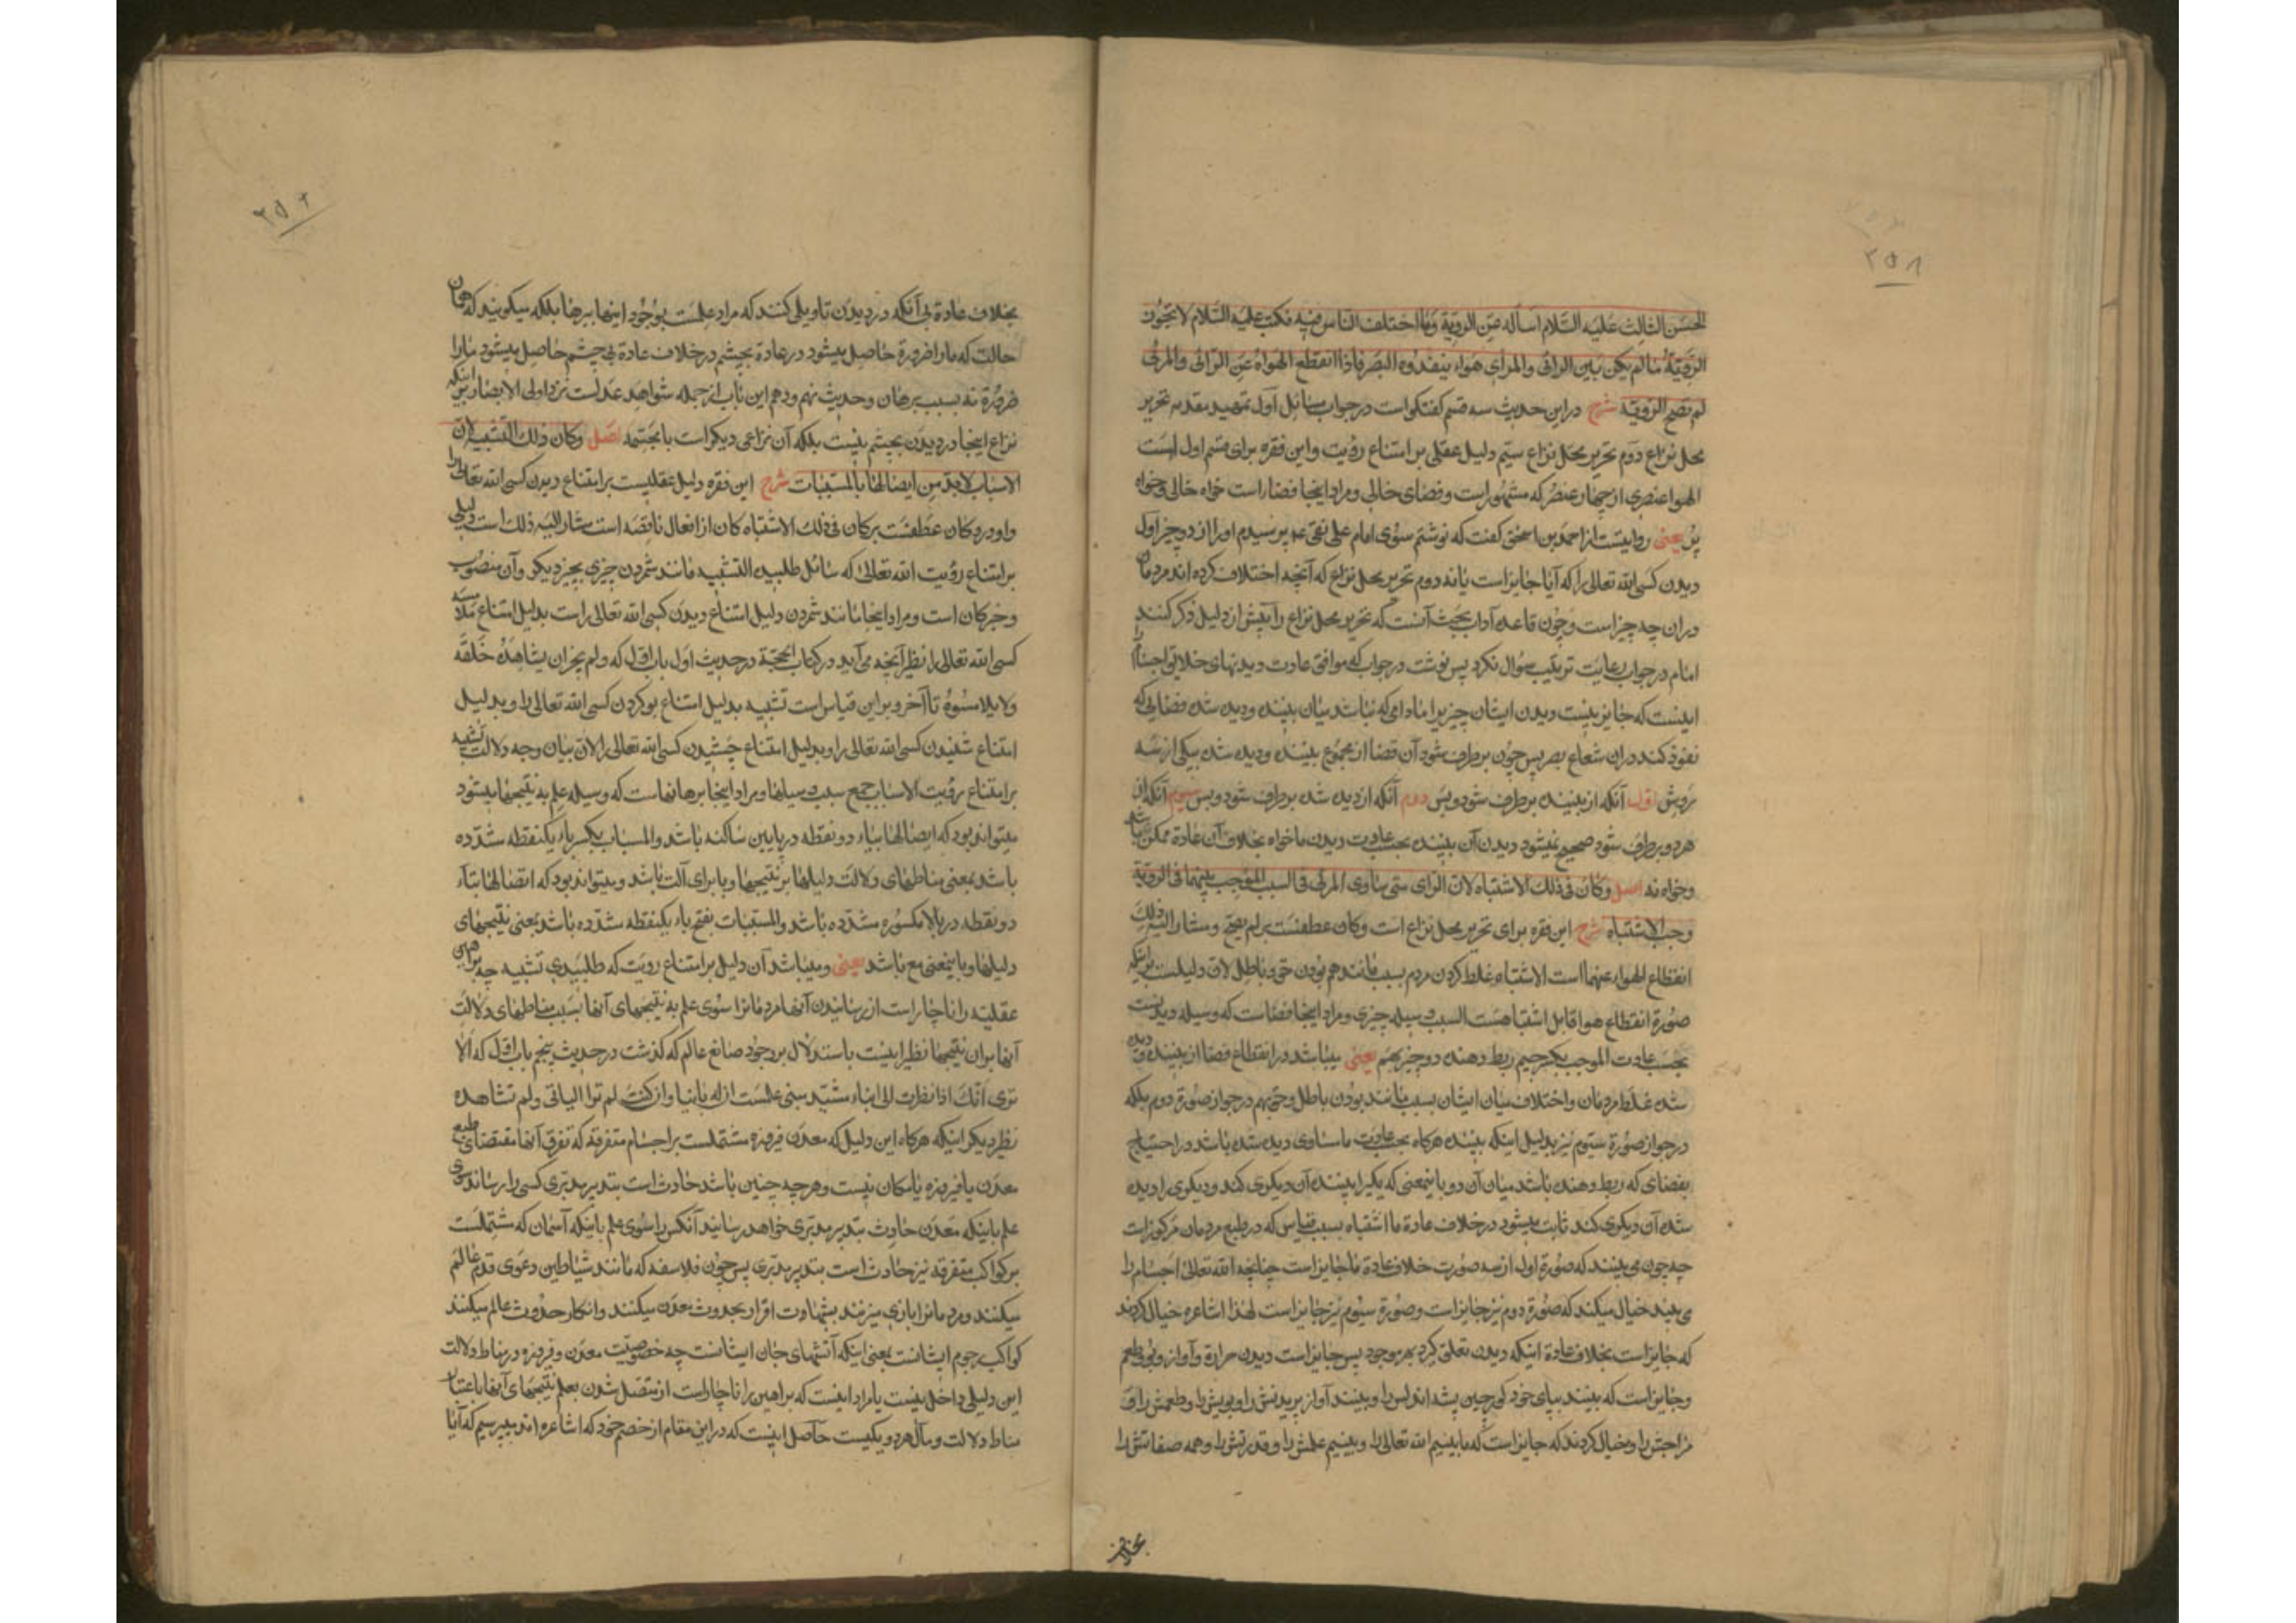 ۲۵۸
الحسن الثالث علیه السلام اسأله عن الرویة وما اختلف الناس فیه فکتب علیه السلام لا تجوز
الرویة ما لم یکن بین الرائی والمرای هواء ینفذه البصر فاذا انقطع الهواء عن الرائی والمرئی
لم تصح الرویة شرح در این حدیث سه قسم گفتگو است در جواب سائل اول تمهید مقدمه تحریر
محل نزاع دوم تحریر محل نزاع سیم دلیل عقلی بر امتناع رؤیت واین فقره برای قسم اول است
الهوا عنصری از چهار عنصر که مشهور است وفضای خالی ومراد اینجا فضا راست خواه خالی وخواه
پر یعنی روایتست از احمد بن اسحق گفت که نوشتم سوی امام علی نقی ع پرسیدم او را از دو چیز اول
دیدن کسی الله تعالی را که آیا جایز است یا نه دوم تحریر محل نزاع که آنچه اختلاف کرده اند مردمان
در ان چه چیز است وچون قاعده آداب بحث آنست که تحریر محل نزاع را پیش از دلیل ذکر کنند
امام در جواب رعایت ترتیب سؤال نکرد پس نوشت در جواب که موافق عادت دیدنهای خلایق اجسام را
اینست که جایز نیست دیدن ایشان چیزیرا مادامی که نباشد میان بیننده ودیده شده فضایی که
نفوذ کند در ان شعاع بصر پس چون بر طرف شود آن فضا از مجموع بیننده ودیده شده بیکی از سه
روش اول آنکه از بیننده بر طرف شود وبس دوم آنکه از دیده شده بر طرف شود وبس سیوم آنکه از
هر دو بر طرف شود صحیح نمیشود دیدن آن بیننده بحسب عادت دیدن ما خواه بخلاف آن عادة ممکن باشد
وخواه نه اصل وکان فی ذلک الاشتباه لان الرای متی ساوی المرئی فی السبب الموجب بینهما فی الرویة
وجب الاشتباه شرح این فقره برای تحریر محل نزاع است وکان عطفست بر لم یصح ومشار الیه ذلک
انقطاع الهواء عنهما است الاشتباه غلط کردن مردم بسبب مانند هم بودن حق وباطل لان دلیلست بر اینکه
صورة انقطاع هوا قابل اشتباه هست السبب وسیله چیزی ومراد اینجا فضاست که وسیله دیدنست
بحسب عادت الموجب بکسر جیم ربط دهنده دو چیز بهم یعنی میباشد در انقطاع فضا از بیننده ودیده
شده غلط مردمان واختلاف میان ایشان بسبب مانند بودن باطل وحق بهم در جواز صورة دوم بلکه
در جواز صورة سیوم نیز بدلیل اینکه بیننده هرگاه بحسب عادت ما مساوی دیده شده باشد در احتیاج
بفضای که ربط دهنده باشد میان آن دو باینمعنی که یکیرا بیننده آن دیگری کند ودیگری را دیده
شده آن دیگری کند ثابت میشود در خلاف عادة ما اشتباه بسبب قیاس که در طبع مردمان مرکوزات
چه چون می بینند که صورة اول از سه صورت خلاف عادة ما جایز است چنانچه الله تعالی اجسام را
می بیند خیال میکند که صورة دوم نیز جایز است وصورة سیوم نیز جایز است لهذا اشاعره خیال کردند
که جایز است بخلاف عادة اینکه دیدن تعلق گیرد بهر موجود پس جایز است دیدن حرارة وآواز وبو وطعم
وجایز است که بیند بپای خود کور چین پشه اندلس را وبیند آواز پریدنش را وبویش را وطعمش را و
مزاجش را وخیال کردند که جایز است که ما ببینیم الله تعالی را وببینیم علمش را وقدرتش را وهمه صفاتش را
بخلاف
۲۵۲
بخلاف عادة بی آنکه در دیدن تاویلی کنند که مراد علمست بوجود اینها ببرهان بلکه میگویند که همان
حالت که ما را ضرورة حاصل میشود در عادة بچشم در خلاف عادة بی چشم حاصل میشود ما را
ضرورة نه بسبب برهان وحدیث نهم ودهم این باب از جمله شواهد عدلست نزد اولی الابصار بر اینکه
نزاع اینجا در دیدن بچشم نیست بلکه آن نزاعی دیگر است با مجسمه اصل وکان ذلک التشبیه لان
الاسباب لابد من ایصالها بالمسببات شرح این فقره دلیل عقلیست بر امتناع دیدن کسی الله تعالی را
واو در وکان عطفست بر کان فی ذلک الاشتباه کان از افعال ناقصه است مشار الیه ذلک است دلیلی
بر امتناع رؤیت الله تعالی که سائل طلبیده التشبیه مانند شمردن چیزی بچیز دیگر وآن منصوب
وخبر کان است ومراد اینجا مانند شمردن دلیل امتناع دیدن کسی الله تعالی راست بدلیل امتناع ملامسه
کسی الله تعالی را نظیر آنچه می آید در کتاب الحجة در حدیث اول باب اول که ولم یجز ان یشاهده خلقه
ولا یلامسوه تا آخر وبر این قیاس است تشبیه بدلیل امتناع بو کردن کسی الله تعالی را وبدلیل
امتناع شنیدن کسی الله تعالی را وبدلیل امتناع چشیدن کسی الله تعالی را لان بیان وجه دلالت تشبیه
بر امتناع رؤیت الاسباب جمع سبب وسیلها ومراد اینجا برهانهاست که وسیله علم به نتیجها میشود
میتواند بود که ایصالها بیاء دو نقطه در پایین ساکنه باشد والمسباب بکسر باء یکنقطه مشدده
باشد بمعنی مناطهای دلالت دلیلها بر نتیجها وبا برای آلت باشد ومیتواند بود که اتصالها بتاء
دو نقطه در بالا مکسوره مشدده باشد والمسببات بفتح باء یکنقطه مشدده باشد بمعنی نتیجهای
دلیلها وبا بمعنی مع باشد یعنی ومیباشد آن دلیل بر امتناع رویت که طلبیدی تشبیه چه براهین
عقلیه را ناچار است از رسانیدن آنها مردمانرا سوی علم به نتیجهای آنها بسبب مناطهای دلالت
آنها بر ان نتیجها نظیر اینست باستدلال بر وجود صانع عالم که گذشت در حدیث پنجم باب اول که الا
تری انک اذا نظرت الی بناء مشید مبنی علمت ان له بانیا وان کنت لم تر البانی ولم تشاهده
نظیر دیگر اینکه هرگاه این دلیل که معدن فیروزه مشتملست بر اجسام متفرقه که تفرق آنها مقتضای طبع
معدن یا فیروزه یا مکان نیست وهر چه چنین باشد حادث است بتدبیر مدبری کسی را رساند سوی
علم باینکه معدن حادث بتدبیر مدبری خواهد رسانید آنکس را سوی علم باینکه آسمان که مشتملست
بر کواکب متفرقه نیز حادث است بتدبیر مدبری پس چون فلاسفه که مانند شیاطین دعوی قدم عالم
میکنند ومردمانرا بازی میزنند بشهادت اقرار بحدوث معدن میکنند وانکار حدوث عالم میکنند
کواکب رجوم ایشانست بمعنی اینکه آتشهای جان ایشانست چه خصوصیت معدن وفیروزه در مناط دلالت
این دلیلی داخل نیست یا مراد اینست که براهین را ناچار است از متصل شدن بعلم نتیجهای آنها باعتبار
مناط دلالت ومآل هر دو یکیست حاصل اینست که در این مقام از خصم خود که اشاعره اند میپرسیم که آیا